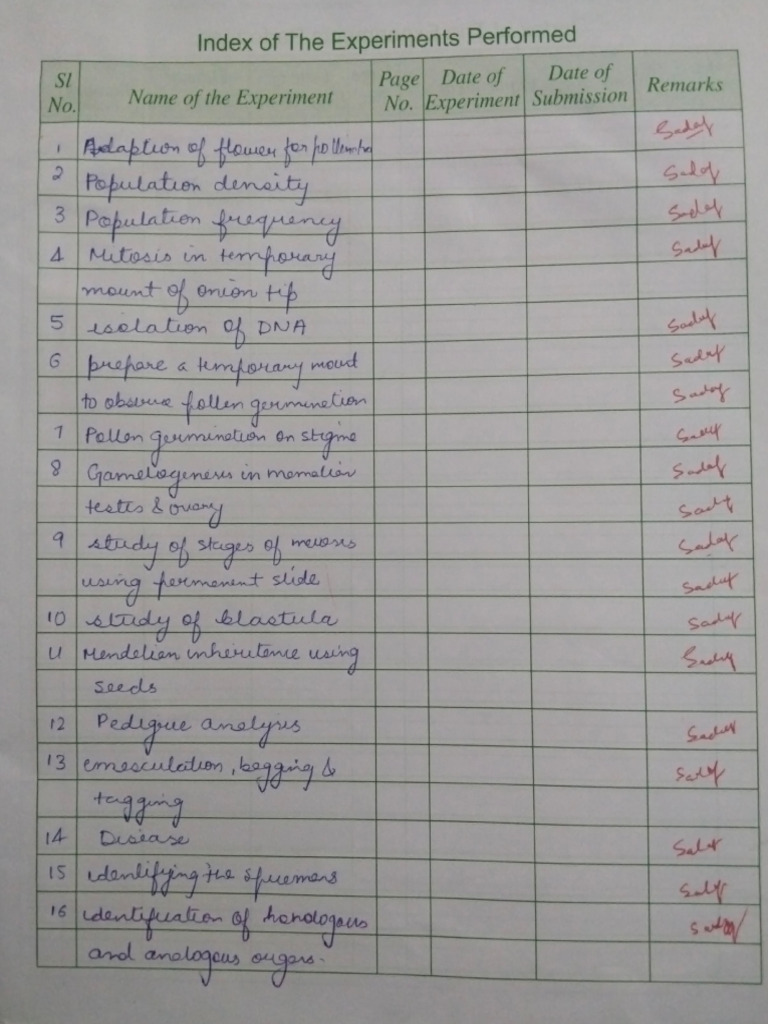 Index of The Experiments Performed
Sl No. Name of the Experiment Page No. Date of Experiment Date of Submission Remarks
1 Adaption of flower for Sadaf
2 Population density Sadaf
3 Population frequency Sadaf
4 Mitosis in temporary Sadaf
mount of onion tip
5 isolation of DNA Sadaf
6 prepare a temporary Sadaf
to observe pollen germinetion Sadaf
7 Pollen germinetion on stigme Sadaf
8 Gametogenesis in memelian Sadaf
testes & ovary Sadaf
9 study of stages of meiosis Sadaf
using permenent slide Sadaf
10 study of blastula Sadaf
11 Mendelien inheritence using Sadaf
seeds
12 Pedigree analysis Sadaf
13 emesculation, begging & Sadaf
tagging
14 Disease Sadaf
15 identifying the Sadaf
16 identification of Sadaf
and analogous